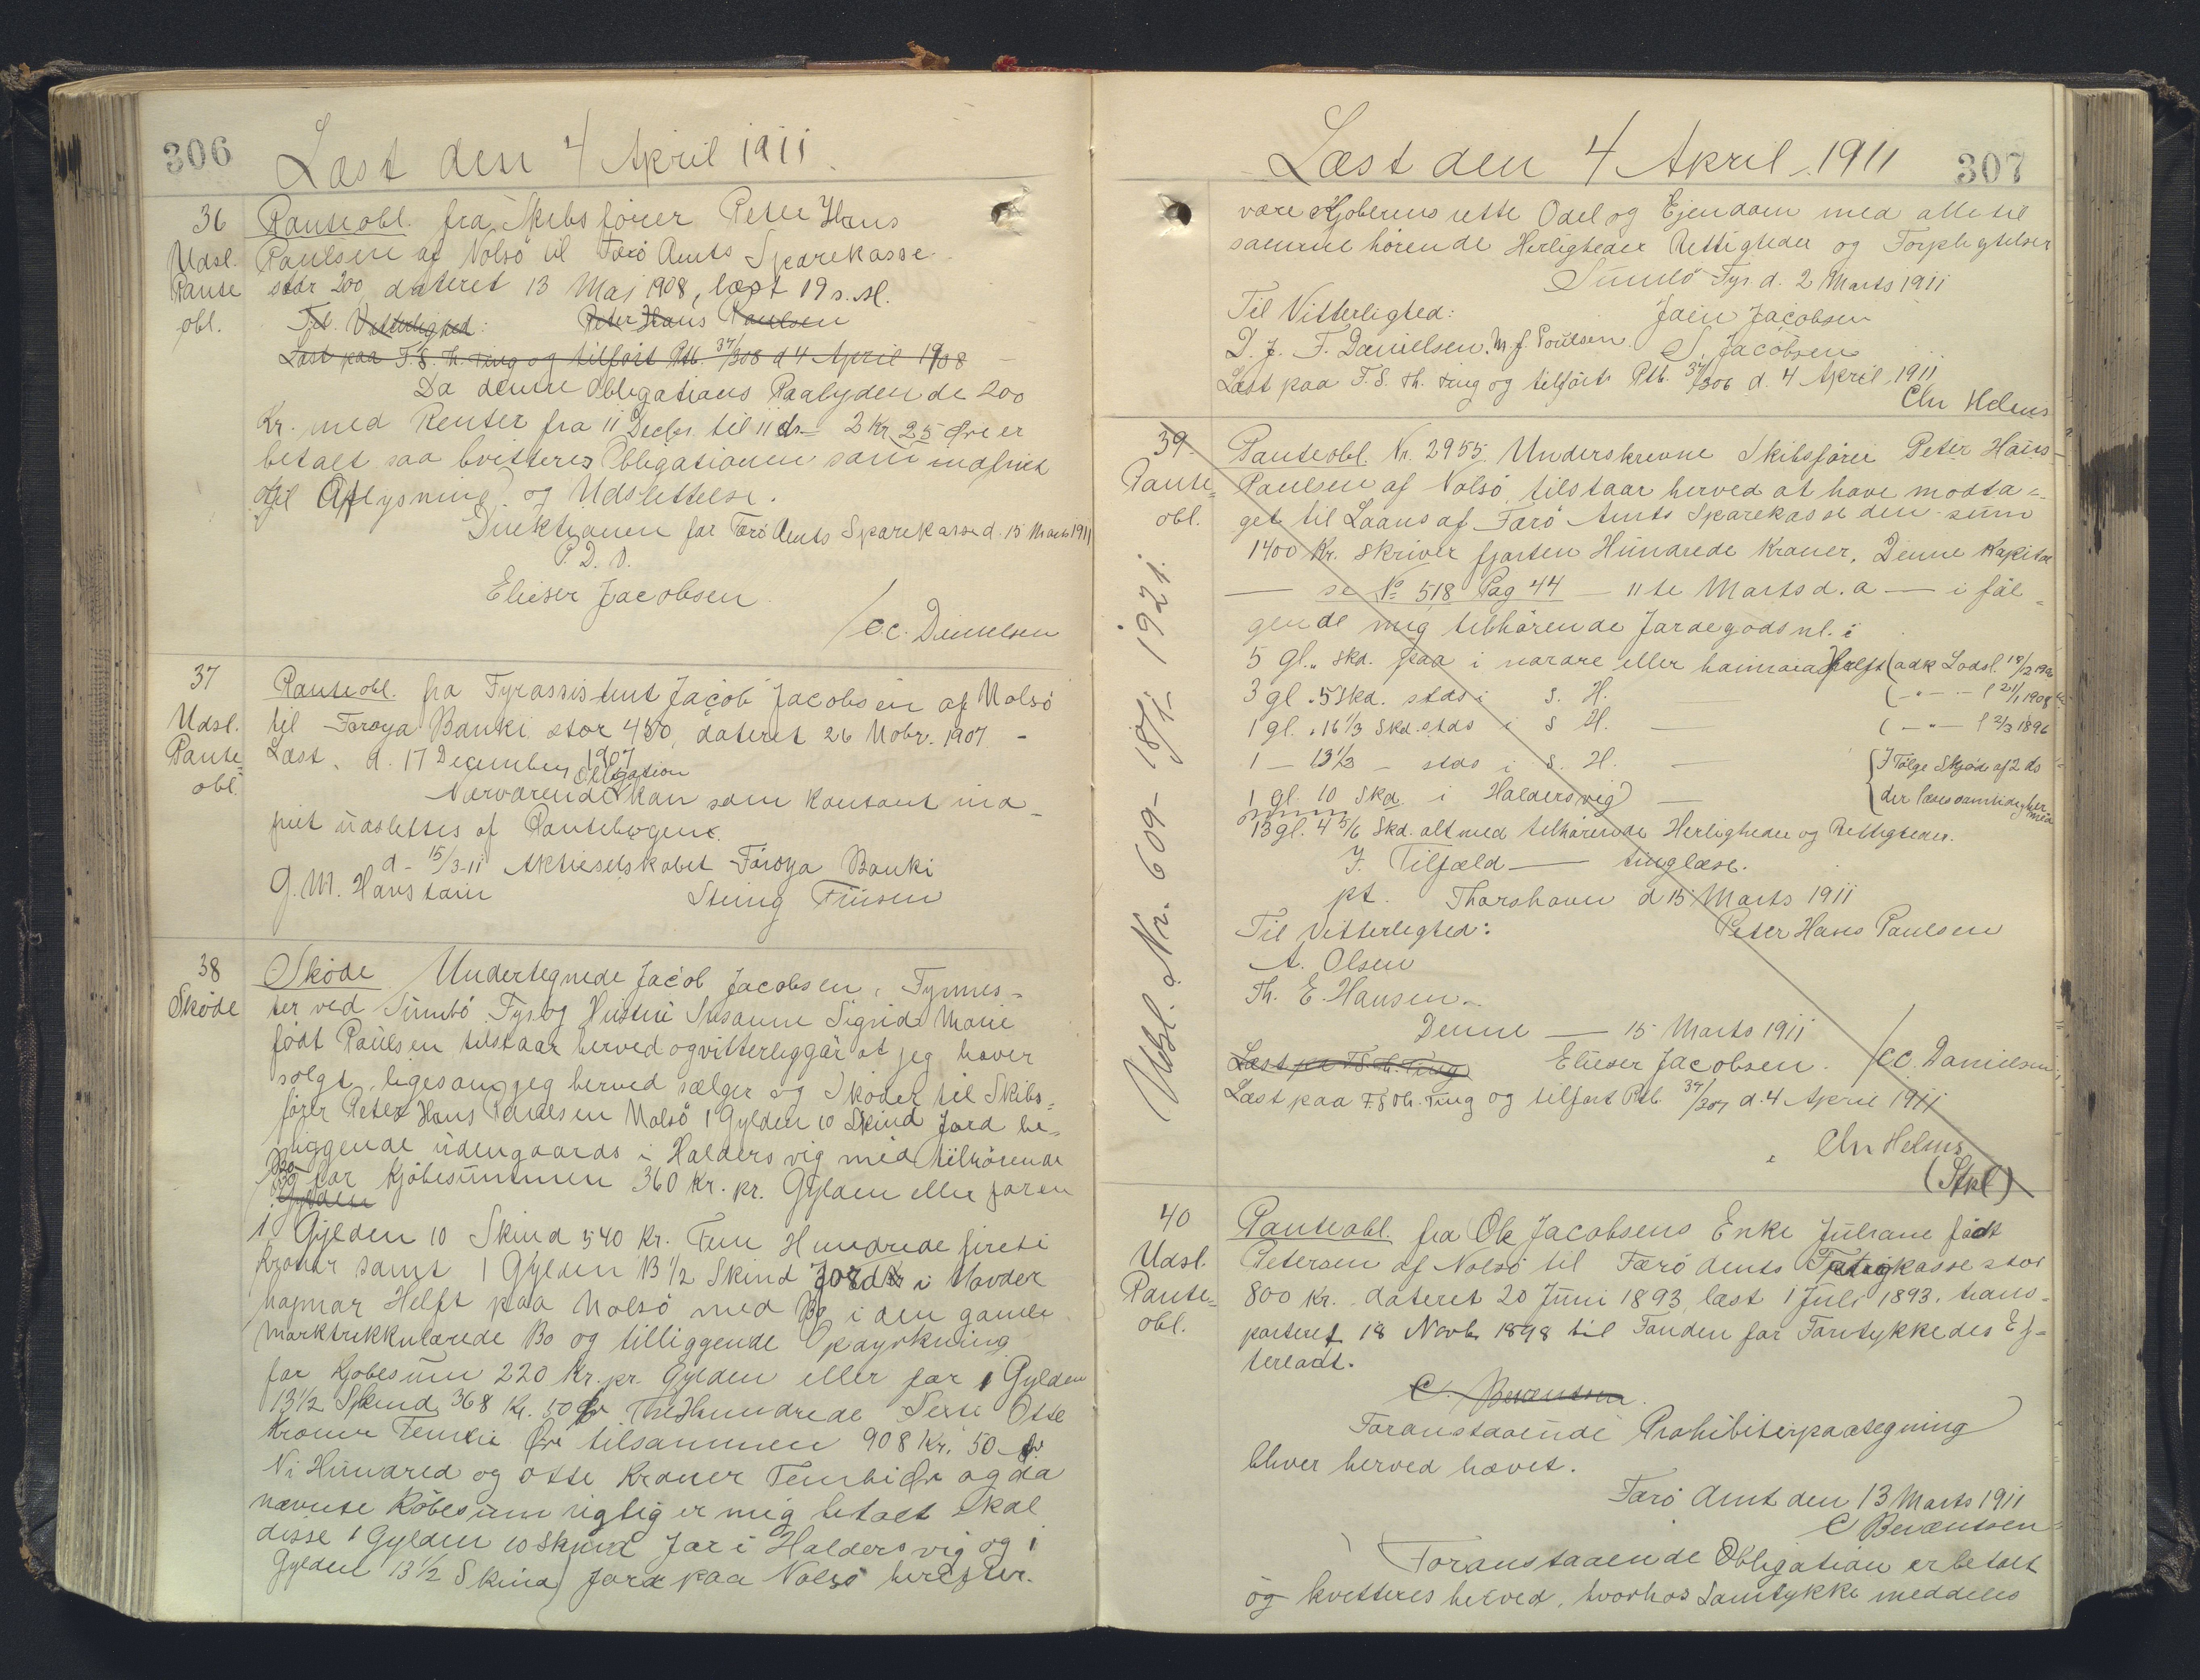 306
Læst den 4 April 1911.
36
Udsl.
Pante
obl.
Panteobl. fra Skibsfører Peter Hans
Paulsen af Nolsö til Færö Amts Sparekasse
stor 200 dateret 13 Maj 1908, læst 19 s. M.
Til Vitterlighed: Peter Hans Paulsen
Læst paa F. S. Th. Ting og tilført Ptb. 37/308 d 4 April 1908
Da denne Obligations Paalydende 200
Kr. med Renter fra 11 Decbr. til 11 ds = 2 Kr 25 Øre er
betalt saa kvitteres Obligationen som indfriet
til Aflysning og Udslettelse.
Direktionen for Færö Amts Sparekasse d. 15 Marts 1911
P. D. V.
Elieser Jacobsen
/C.C. Danielsen
37
Udsl.
Pante
obl.
Panteobl. fra Fyrassistent Jacob Jacobsen af Nolsö
til Föroya Banki stor 450, dateret 26 Nobr. 1907 -
Læst d. 17 December 1907
Obligation
Nærværende kan som kontant ind-
friet udslettes af Pantebogen.
d. 15/3-11 Aktieselskabet Föroya Banki
G. M. Havstein
38
Sköde
Sköde Undertegnede Jacob Jacobsen, Fyrmes-
ter ved Sumbö Fyr og Hustru Susanne Sigrid Marie
född Paulsen tilstaar herved og vitterliggör at jeg haver
solgt, ligesom jeg herved sælger og Sköder til Skibs-
fører Peter Hans Paulsen Nolsö 1 Gylden 10 Skind Jord be-
liggende udengaards i Haldersvig med tilhørende
Bo for Kjöbesummen 360 Kr. pr. Gylden eller for en
Gylden
1 Gylden 10 Skind 540 Kr. Fem Hundrede fireti
Kroner samt 1 Gylden 13 1/2 Skind Jord i Hovder
Hapnar Helft paa Nolsö med Bo i den gamle
Marktrikkulærede Bo og tilliggende Opdyrkning
for Kjøbesum 220 Kr. pr. Gylden eller for 1 Gylden
13 1/2 Skind 368 Kr. 50 Øre Tre Hundrede Otte
Kroner Femti Øre tilsammen 908 Kr. 50 Øre
Ni Hundred og otte Kroner Femti Øre og da
nævnte Købesum rigtig er mig betalt skal
disse 1 Gylden 10 Skind Jor i Haldersvig og 1
Gylden 13 1/2 Skind Jord paa Nolsö herefter.
Læst den 4 April 1911
307
være Kjøberens rette Odel og Ejendom med alle til
samme hørende Herligheder Rettigheder og Forpligtelser
Sumbö Fyr d. 2 Marts 1911
Til Vitterlighed: Jacob Jacobsen
D. J. F. Danielsen. M. J. Poulsen. S. Jacobsen
Læst paa F. S. Th. Ting og tilført Ptb. 37/306 d. 4 April 1911
Chr Helms
39.
Pante
obl.
Udsl. s. Nr. 609 - 18/1 - 1921.
Panteobl. Nr. 2955. Underskrevne Skibsfører Peter Hans
Paulsen af Nolsö tilstaar herved at have modta-
get til Laans af Færö Amts Sparekasse den Sum
1400 Kr. skriver fjorten Hundrede Kroner. Denne Kapital
— se No 518 Pag 44 — 11te Marts d. a — i føl-
gende mig tilhørende Jordegods nl. i
5 gl. „ Skd. paa i nardre eller haimara Helft (adk Lodsl.
3 gl. 5 Skd. stds i s. H. 1908
1 gl. 16 1/3 Skd. stds i s. H. — ( — „ — 2/3 1896
1 — 13 1/3 — stds i s. H. — { I Følge Skjøde af 2 ds
1 gl 10 Skd. i Haldersvig — der læses samtidig her
med
13 gl. 4 5/6 Skd. alt med tilhørende Herligheder og Rettigheder.
I Tilfæld — tinglæse.
pt. Thorshavn d 15 Marts 1911
Til Vitterlighed: Peter Hans Paulsen
A. Olsen
Th. E. Hansen
Denne — 15 Marts 1911
Læst paa F. S. Th. Ting Elieser Jacobsen. /CC. Danielsen
Læst paa F. S. Th. Ting og tilført Ptb. 37/307 d. 4 April 1911
Chr Helms
(Stpl)
40
Udsl.
Pante
obl.
Panteobl. fra Ole Jacobsens Enke Juliane født
Petersen af Nolsö til Færö Amts Fattigkasse stor
800 Kr. dateret 20 Juni 1893, læst 1 Juli 1893, trans-
porteret 18 Novb. 1898 til Fonden for Forulykkedes Ef-
terladt.
C. Bærentsen.
Foranstaaende Prohibitivpaategning
bliver herved hævet.
Færö Amt den 13 Marts 1911
C Bærentsen
Foranstaaende Obligation er betalt
og kvitteres herved, hvorhos Samtykke meddeles